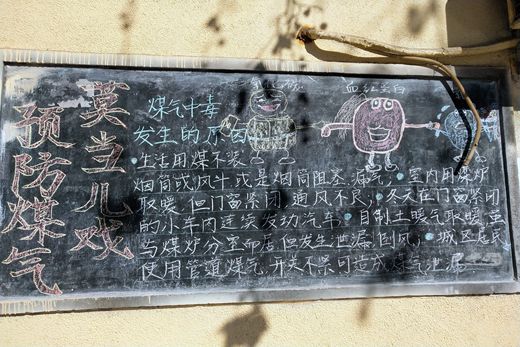 预防煤气
莫当儿戏
血红蛋白
煤气中毒
发生的原因
•生活用煤不装
烟筒或风斗,或是烟筒阻塞、漏气;室内用煤炉
取暖,但门窗紧闭,通风不良;冬天在门窗紧闭
的小车内连续发动汽车。自制土暖气取暖,虽
与煤炉分室而居,但发生泄漏、倒风;城区居民
使用管道煤气,开关不紧可造成煤气泄漏